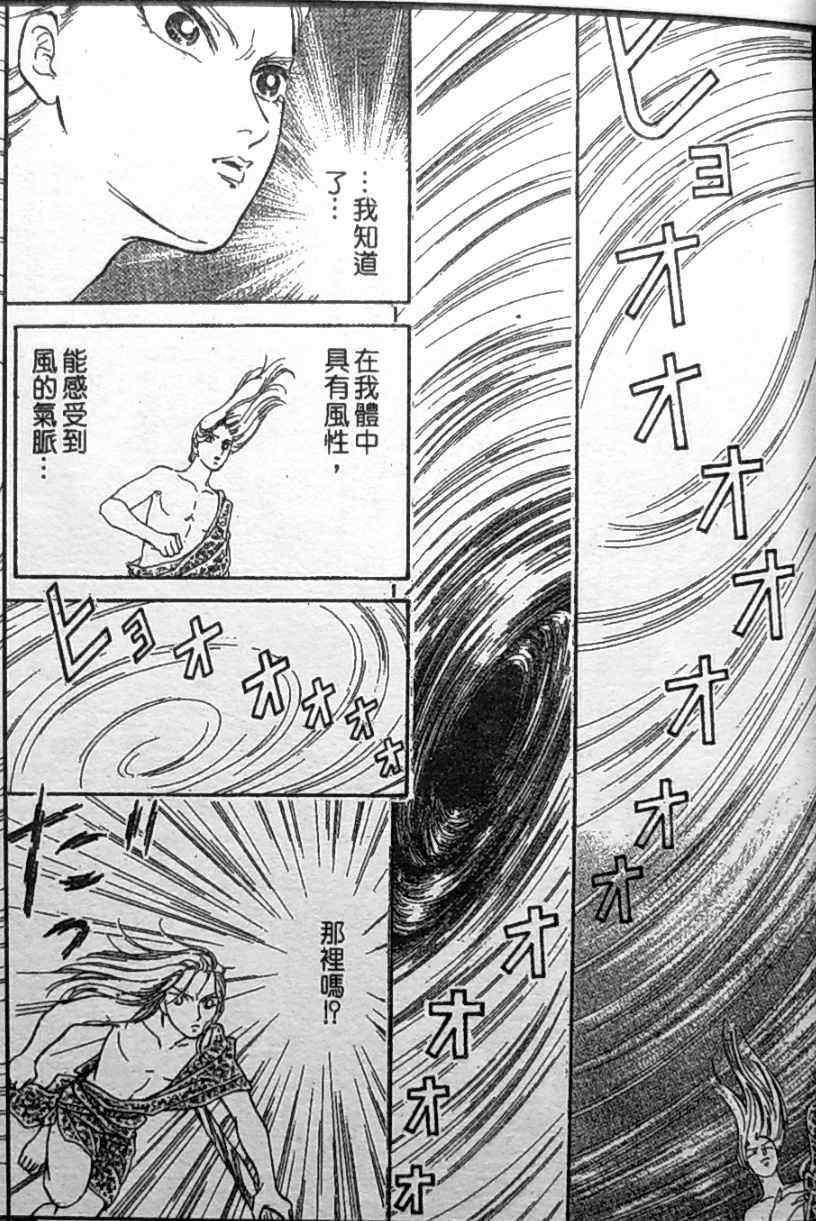 ヒョオオオオオオオオ
オオオオオ
…我知道
了…
在我體中
具有風性，
能感受到
風的氣脈…
ヒョオオオオオ
ダッ
那裡嗎!?